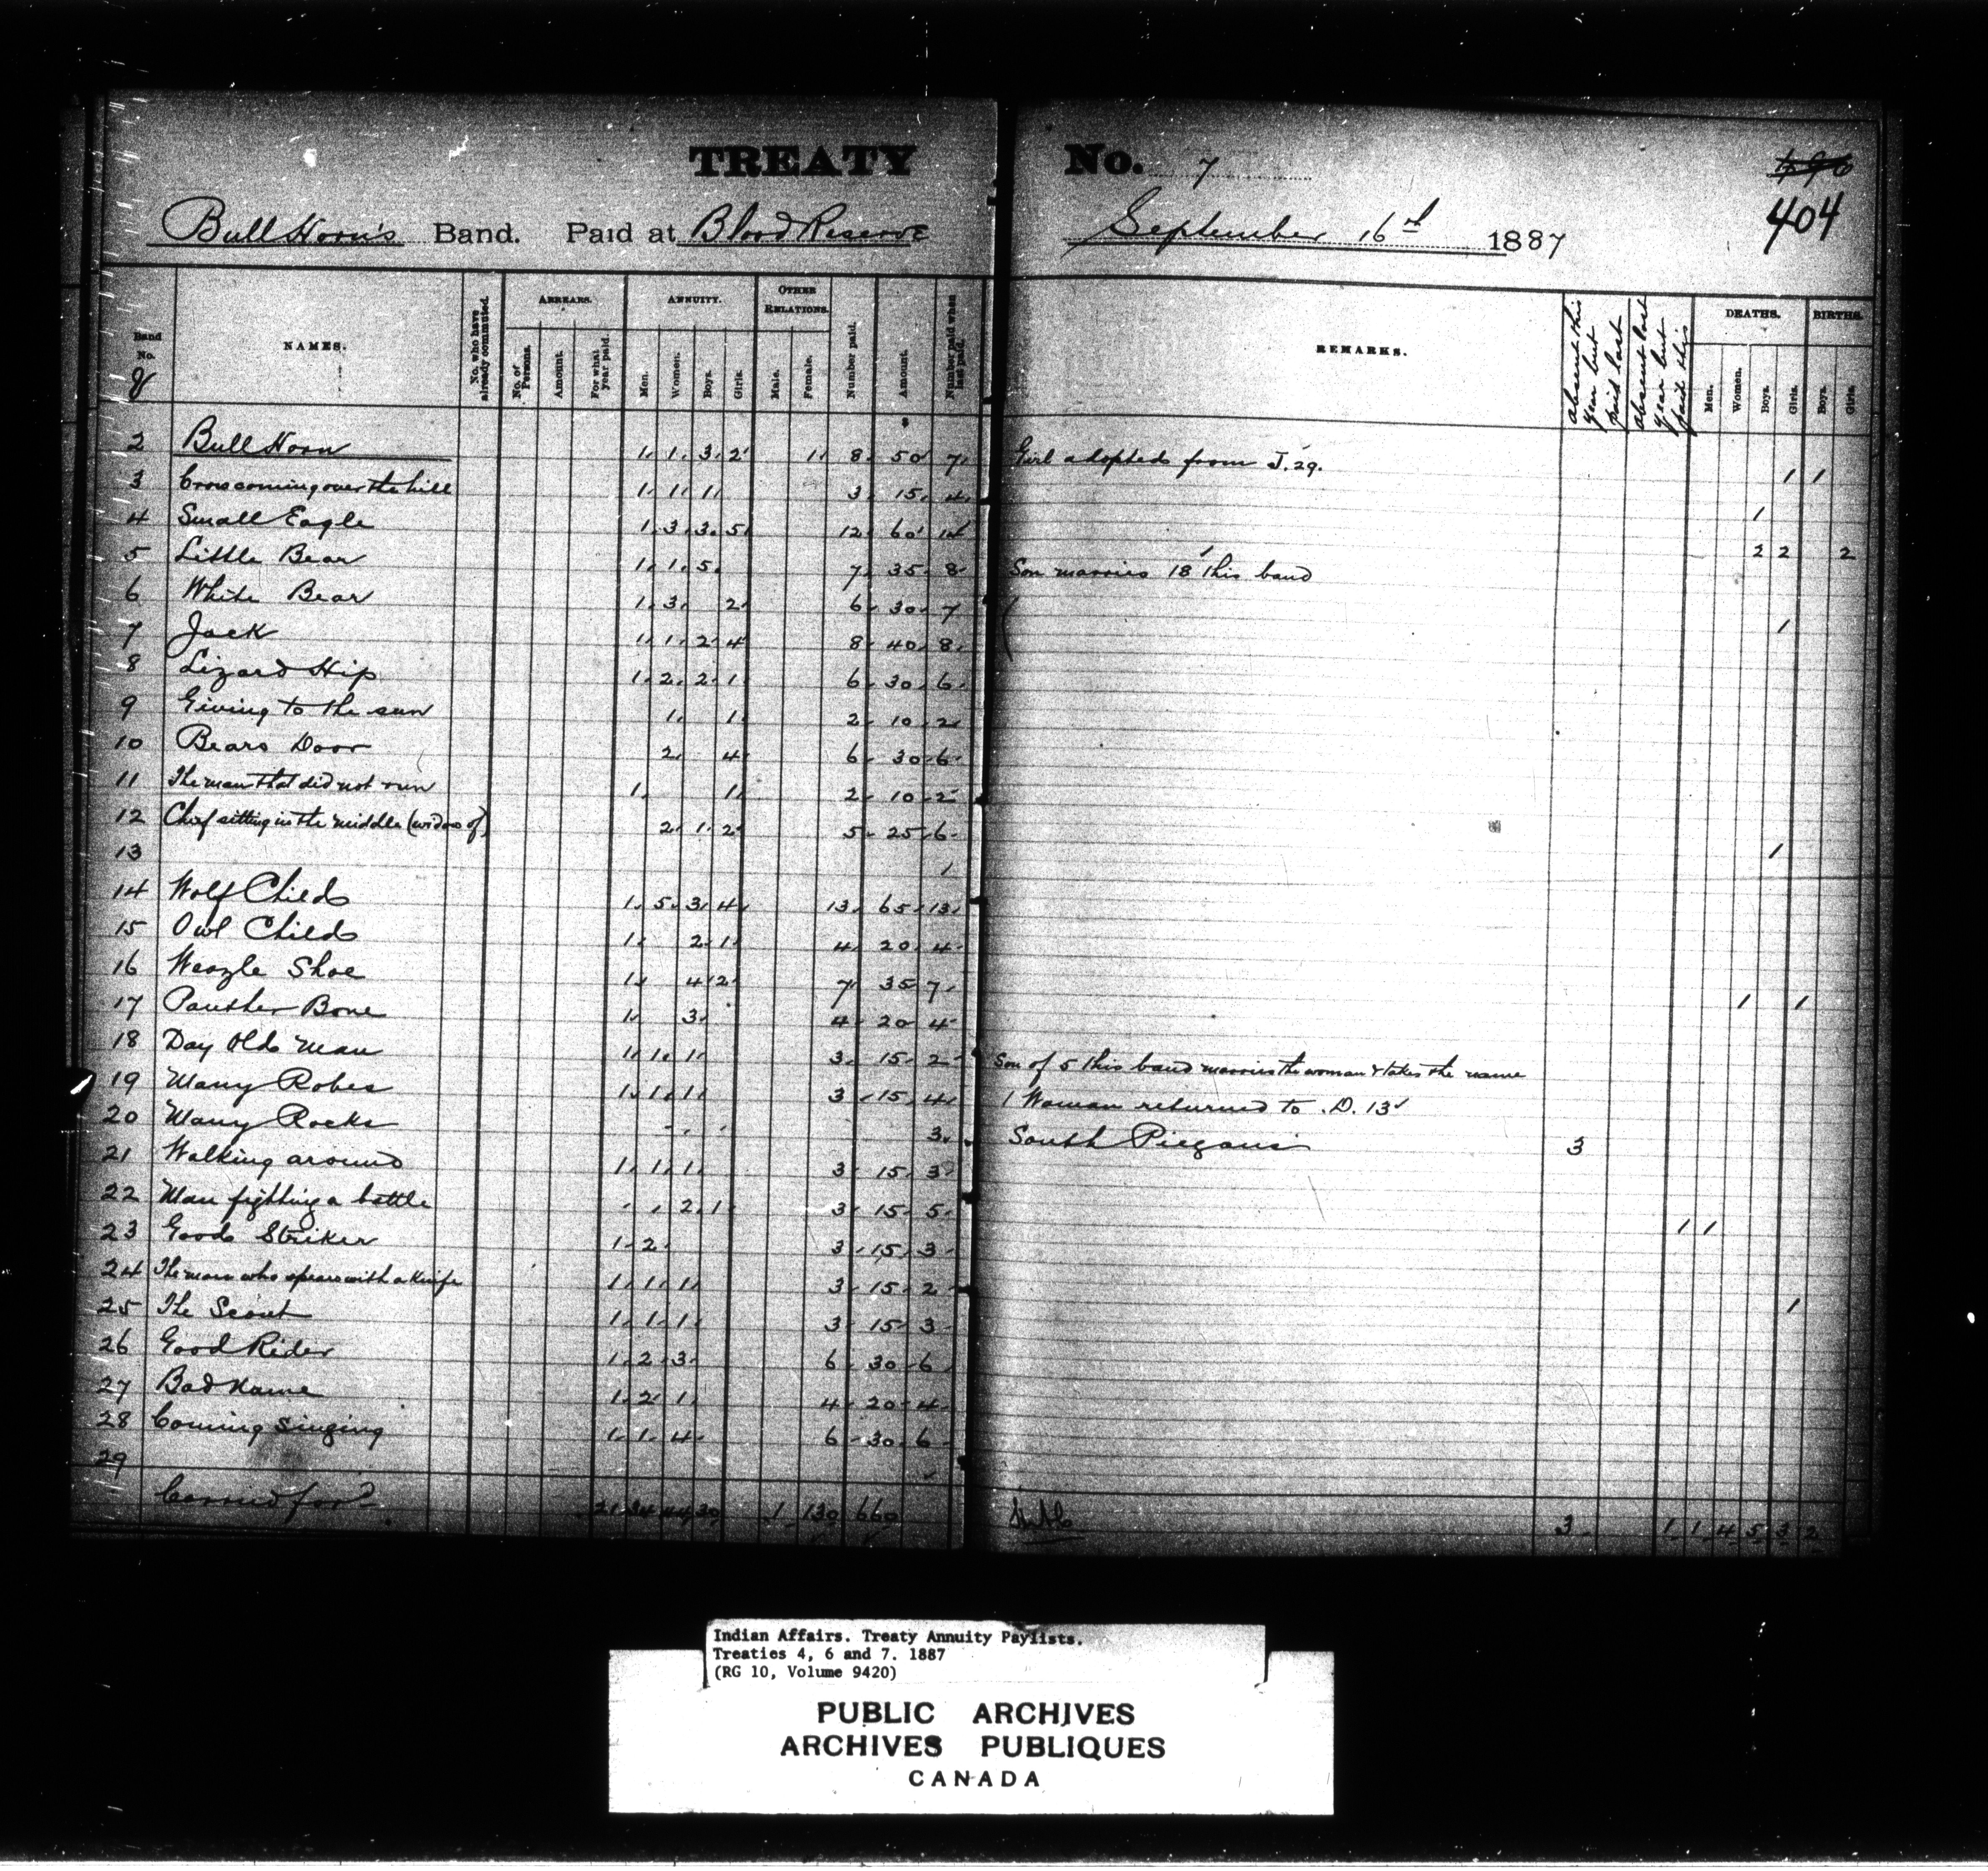 TREATY No. 7
404
Bull Horn's Band. Paid at Blood Reserve September 16th 1887
Band No. NAMES. No. who have already commuted. ARREARS. No. of Persons. Amount. For what year paid. ANNUITY. Men. Women. Boys. Girls. OTHER RELATIONS. Male. Female. Number paid. Amount. Number paid when last paid. REMARKS. absent this year but paid last absent last year but paid this DEATHS. Men. Women. Boys. Girls. BIRTHS. Boys. Girls.
2 Bull Horn 1 1 3 2 1 8 50 7 Girl adopted from J. 29. 1 1
3 Crow coming over the hill 1 1 1 3 15 4 1
4 Small Eagle 1 3 3 5 12 60 14 2 2 2
5 Little Bear 1 1 5 7 35 8 Son marries 18 this band
6 White Bear 1 3 2 6 30 7 1
7 Jack 1 1 2 4 8 40 8
8 Lizard Hip 1 2 2 1 6 30 6
9 Giving to the sun 1 1 2 10 2
10 Bears Door 2 4 6 30 6
11 The man that did not run 1 1 2 10 2
12 Chief sitting in the middle (widow of) 2 1 2 5 25 6 1
13 1
14 Wolf Child 1 5 3 4 13 65 13
15 Owl Child 1 2 1 4 20 4
16 Weazle Shoe 1 4 2 7 35 7 1 1
17 Panther Bone 1 3 4 20 4
18 Day Old Man 1 1 1 3 15 2 Son of 5 this band marries the woman & takes the name
19 Many Robes 1 1 1 3 15 4 1 Woman returned to D. 13
20 Many Rocks 3 South Piegans 3
21 Walking around 1 1 1 3 15 3
22 Man fighting a battle 2 1 3 15 5 1 1
23 Good Striker 1 2 3 15 3
24 The man who spears with a knife 1 1 1 3 15 2 1
25 The Scout 1 1 1 3 15 3
26 Good Rider 1 2 3 6 30 6
27 Bad Name 1 2 1 4 20 4
28 Coming Singing 1 1 4 6 30 6
29
Carried for'd 21 34 44 30 1 130 660 3 1 1 4 5 3 2
Indian Affairs. Treaty Annuity Paylists.
Treaties 4, 6 and 7. 1887
(RG 10, Volume 9420)
PUBLIC ARCHIVES
ARCHIVES PUBLIQUES
CANADA